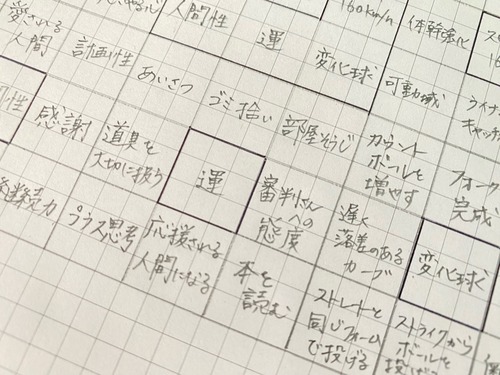 人間性
運
160km/h
体幹強化
愛される
人間
計画性
あいさつ
ゴミ拾い
変化球
可動域
部屋そうじ
カウント
ボールを
増やす
フォーク
完成
感謝
道具を
大切に扱う
運
審判さん
への
態度
遅く
落差のある
カーブ
変化球
継続力
プラス思考
応援される
人間になる
本を
読む
ストレートと
同じフォーム
で投げる
ストライクから
ボールを